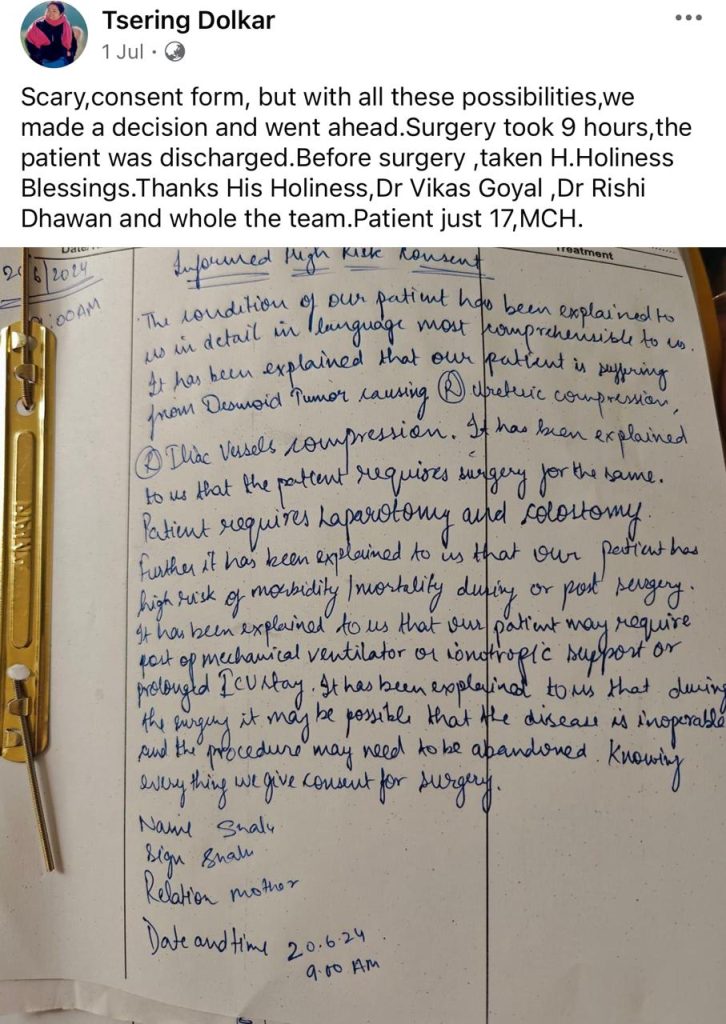 Tsering Dolkar
1 Jul
Scary,consent form, but with all these possibilities,we
made a decision and went ahead.Surgery took 9 hours,the
patient was discharged.Before surgery ,taken H.Holiness
Blessings.Thanks His Holiness,Dr Vikas Goyal ,Dr Rishi
Dhawan and whole the team.Patient just 17,MCH.
Date
Treatment
Informed High Risk Consent
6/2024
:00AM
The condition of our patient has been explained to
us in detail in language most comprehensible to us.
It has been explained that our patient is suffering
from Desmoid Tumor causing Ⓡ ureteric compression,
Ⓡ Iliac Vessels compression. It has been explained
to us that the patient requires surgery for the same.
Patient requires Laparotomy and colostomy.
Further it has been explained to us that our patient has
high risk of morbidity/mortality during or post surgery.
It has been explained to us that our patient may require
post op mechanical ventilator or ionotropic support or
prolonged ICU stay. It has been explained to us that during
the surgery it may be possible that the disease is inoperable
and the procedure may need to be abandoned. Knowing
everything we give consent for surgery.
Name
Sign
Relation mother
Date and time 20.6.24
9.00 AM